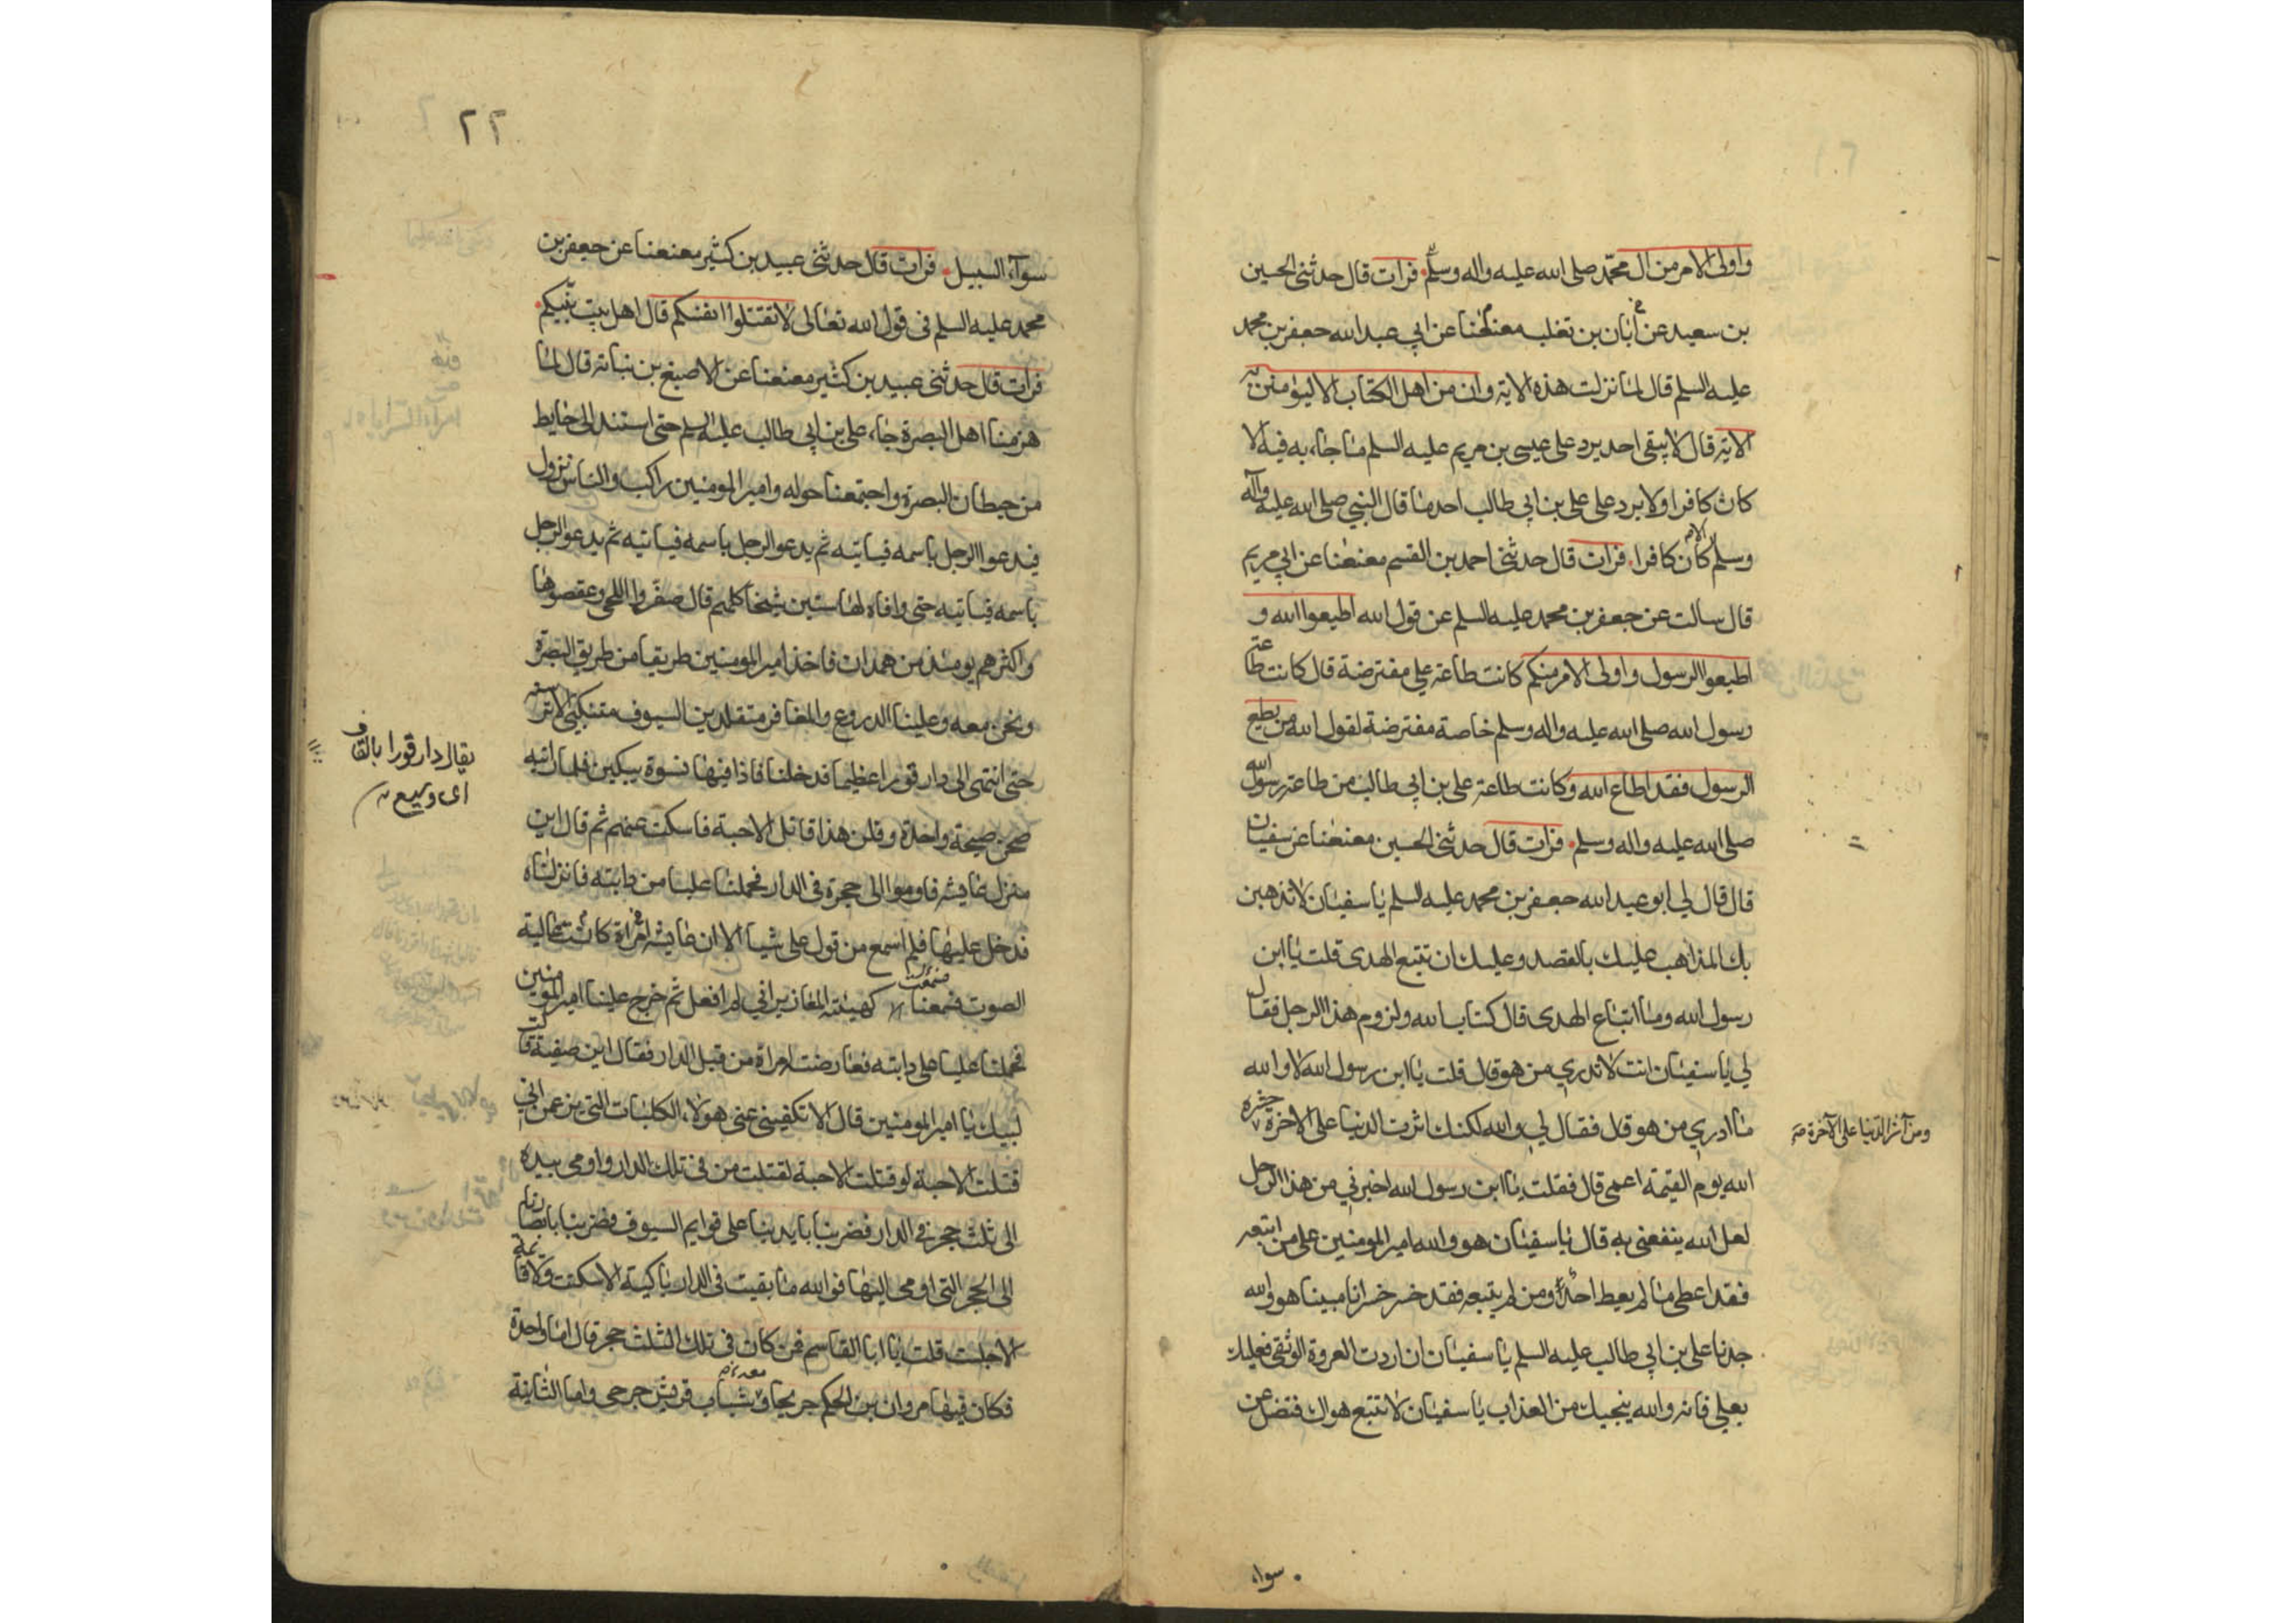 واولى الامر من ال محمد صلى الله عليه واله وسلم فرات قال حدثنى الحسين
بن سعيد عن أبان بن تغلب معنعنا عن ابي عبد الله جعفر بن محمد
عليه السلم قال لما نزلت هذه الاية وان من اهل الكتاب الا ليؤمنن به
الاية قال لا يبقى احد يرد على عيسى بن مريم عليه السلم ما جاء به فيه الا
كان كافرا ولا يرد على على بن ابي طالب احد ما قال النبي صلى الله عليه وآله
وسلم الا كان كافرا فرات قال حدثنى احمد بن القسم معنعنا عن ابي مريم
قال سالت عن جعفر بن محمد عليه السلم عن قول الله اطيعوا الله و
اطيعوا الرسول واولى الامر منكم كانت طاعة علي مفترضة قال كانت طاعته
رسول الله صلى الله عليه واله وسلم خاصة مفترضة لقول الله من يطع
الرسول فقد اطاع الله وكانت طاعة على بن ابي طالب من طاعة رسول الله
صلى الله عليه واله وسلم فرات قال حدثنى الحسين معنعنا عن سفيان
قال قال لي ابو عبد الله جعفر بن محمد عليه السلم يا سفيان لا تذهبن
بك المذاهب عليك بالقصد وعليك ان تتبع الهدى قلت يا ابن
رسول الله وما اتباع الهدى قال كتاب الله ولزوم هذا الرجل فقال
لي يا سفيان انت لا تدري من هو قال قلت يا ابن رسول الله لا والله
ما ادري من هو قال فقال لي والله لكنك اثرت الدنيا على الاخرة حشره
ومن آثر الدنيا على الآخرة
الله يوم القيمة اعمى قال فقلت يا ابن رسول الله اخبرني من هذا الرجل
لعل الله ينفعنى به قال يا سفيان هو والله امير المومنين على من اتبعه
فقد اعطى ما لم يعط احد ومن لم يتبعه فقد خسر خسرانا مبينا هو والله
جدنا على بن ابي طالب عليه السلم يا سفيان ان اردت العروة الوثقى فعليك
بعلي فانه والله ينجيك من العذاب يا سفيان لا تتبع هواك فتضل عن
سواء
٢٢
سوآء السبيل فرات قال حدثنى عبيد بن كثير معنعنا عن جعفر بن
محمد عليه السلم فى قول الله تعالى لا تقتلوا انفسكم قال اهل بيت نبيكم
فرات قال حدثنى عبيد بن كثير معنعنا عن الاصبغ بن نباته قال لما
هزمنا اهل البصرة جاء على بن ابي طالب عليه السلم حتى استند الى حايط
من حيطان البصرة واجتمعنا حوله وامير المومنين راكب والناس نزول
فيدعوا الرجل باسمه فياتيه ثم يدعو الرجل باسمه فياتيه ثم يدعو الرجل
باسمه فياتيه حتى وافاه لها ستين شيخا كلهم قال صفروا اللحى وعقصوها
واكثرهم يومئذ من همدان فاخذ امير المومنين طريقا من طريق البصرة
ونحن معه وعلينا الدروع والمغافر متقلدين السيوف متنكبي الاترسة
حتى انتهى الى دار قوراء عظيما فدخلنا فاذا فيها نسوة يبكين فلما راينه
يقال دار قورا بالقاف
اى وسيع
صحن صيحة واحدة وقلن هذا قاتل الاحبة فاسكت عنهم ثم قال اين
منزل عايشه فاوموا الى حجرة فى الدار فحملنا عليا من دابته فانزلناه
فدخل عليها فلم اسمع من قول على شيا الا ان عايشه امراة كانت عالية
الصوت فسمعنا كهيئة المغازير انى لم افعل ثم خرج علينا امير المومنين
فحملنا عليا على دابته فعارضته امراة من قبل الدار فقال اين صفية قالت
لبيك يا امير المومنين قال الا تكفينى عنى هولاء الكلبات التى يزعمن انى
قتلت الاحبة لو قتلت الاحبة لقتلت من فى تلك الدار واومى بيده
الى ثلث حجر فى الدار فضربنا بايدينا على قوايم السيوف وضربنا بابصارنا
الى الحجر التى اومى اليها فوالله ما بقيت فى الدار باكية الا سكتت ولا قائمة
الا جلست قلت يا ابا القاسم فمن كان فى تلك الثلث حجر قال اما واحدة
فكان فيها مروان بن الحكم جريحا ومعه شباب قريش جرحى واما الثانية